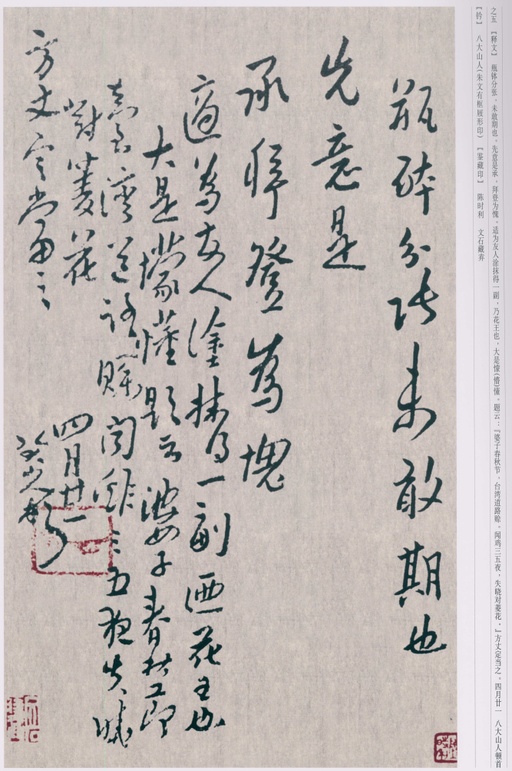 之五 【释文】 瓶钵分张,未敢期也。先意是承,拜登为愧。适为友人涂抹得一副,乃花王也,大是懞(懵)懂。题云:「婆子春秋节,台湾道路赊,闻鸡三五夜,失晓对菱花。」方丈定当之。四月廿一 八大山人顿首
【钤】 八大山人(朱文有框屐形印) 【鉴藏印】 陈时利 文石藏弆
瓶鉢分張未敢期也
先意是
承拜登為愧
適為友人塗抹得一副迺花王也
大是懞懂題云婆子春秋節
臺灣道路賒聞雞三五夜失曉
對菱花
方丈定當之
四月廿一
八大山人頓首